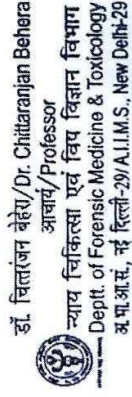 डॉ. चित्तरंजन बेहेरा/Dr. Chittaranjan Behera
आचार्य/Professor
न्याय चिकित्सा एवं विष विज्ञान विभाग
Deptt. of Forensic Medicine & Toxicology
अ.भा.आ.सं., नई दिल्ली-29/A.I.I.M.S. New Delhi-29